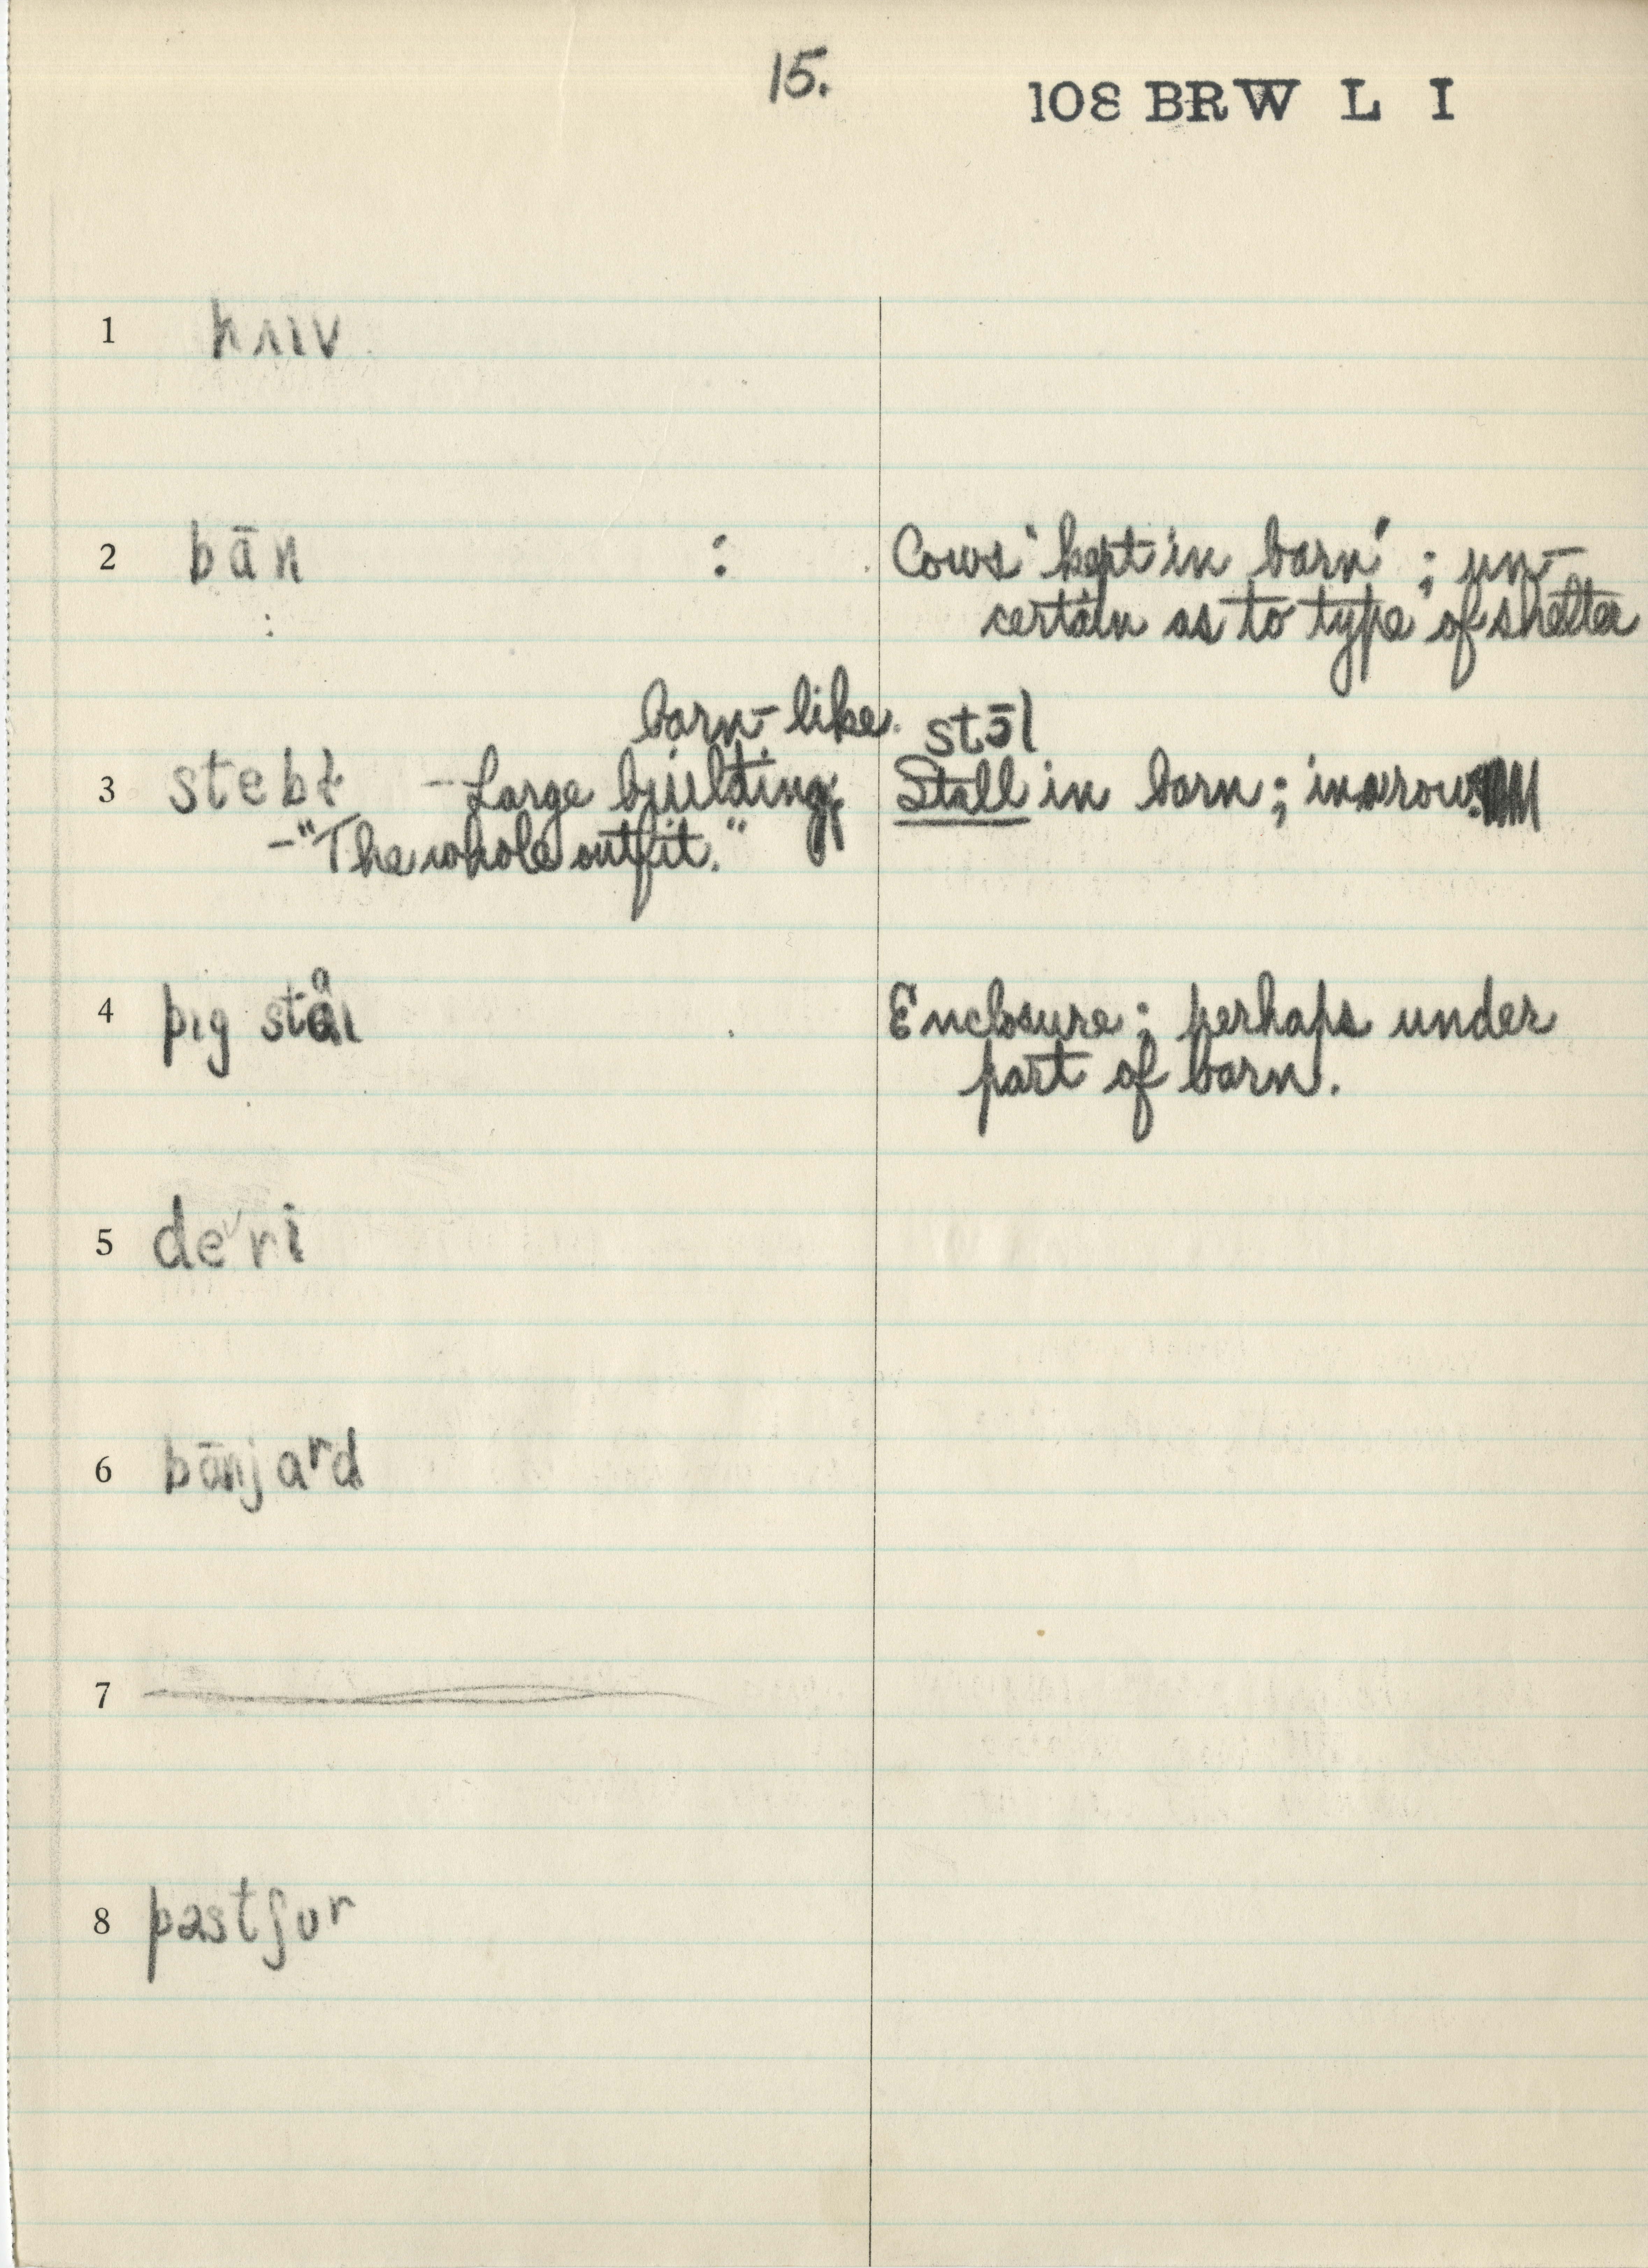 15.
108 BRW L I
1
2 bān : Cows 'kept in barn' ; un-
certain as to type of shelter
barn-like. stɔ̄l
3 stebɫ – Large building, Stall in barn; in a row.
– "The whole outfit."
4 pɪg Enclosure; perhaps under
part of barn.
5 de˅ri
6 bānjaʳd
7
8 pastʃuʳ